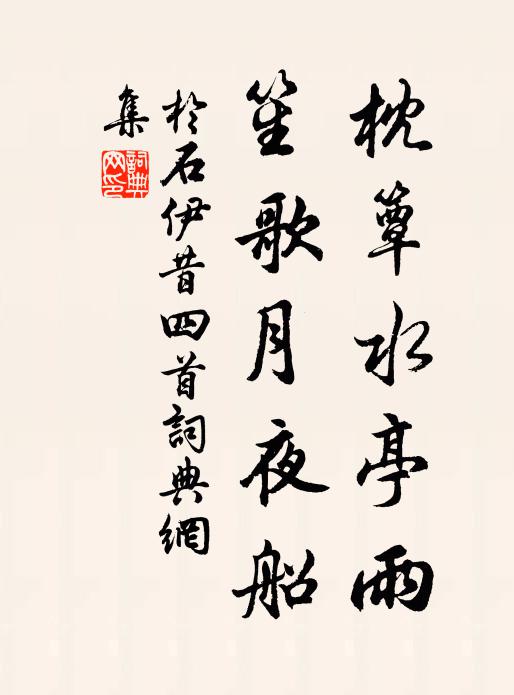 枕簟水亭雨
笙歌月夜船
於石伊昔四首詞典網
集
詞典網印